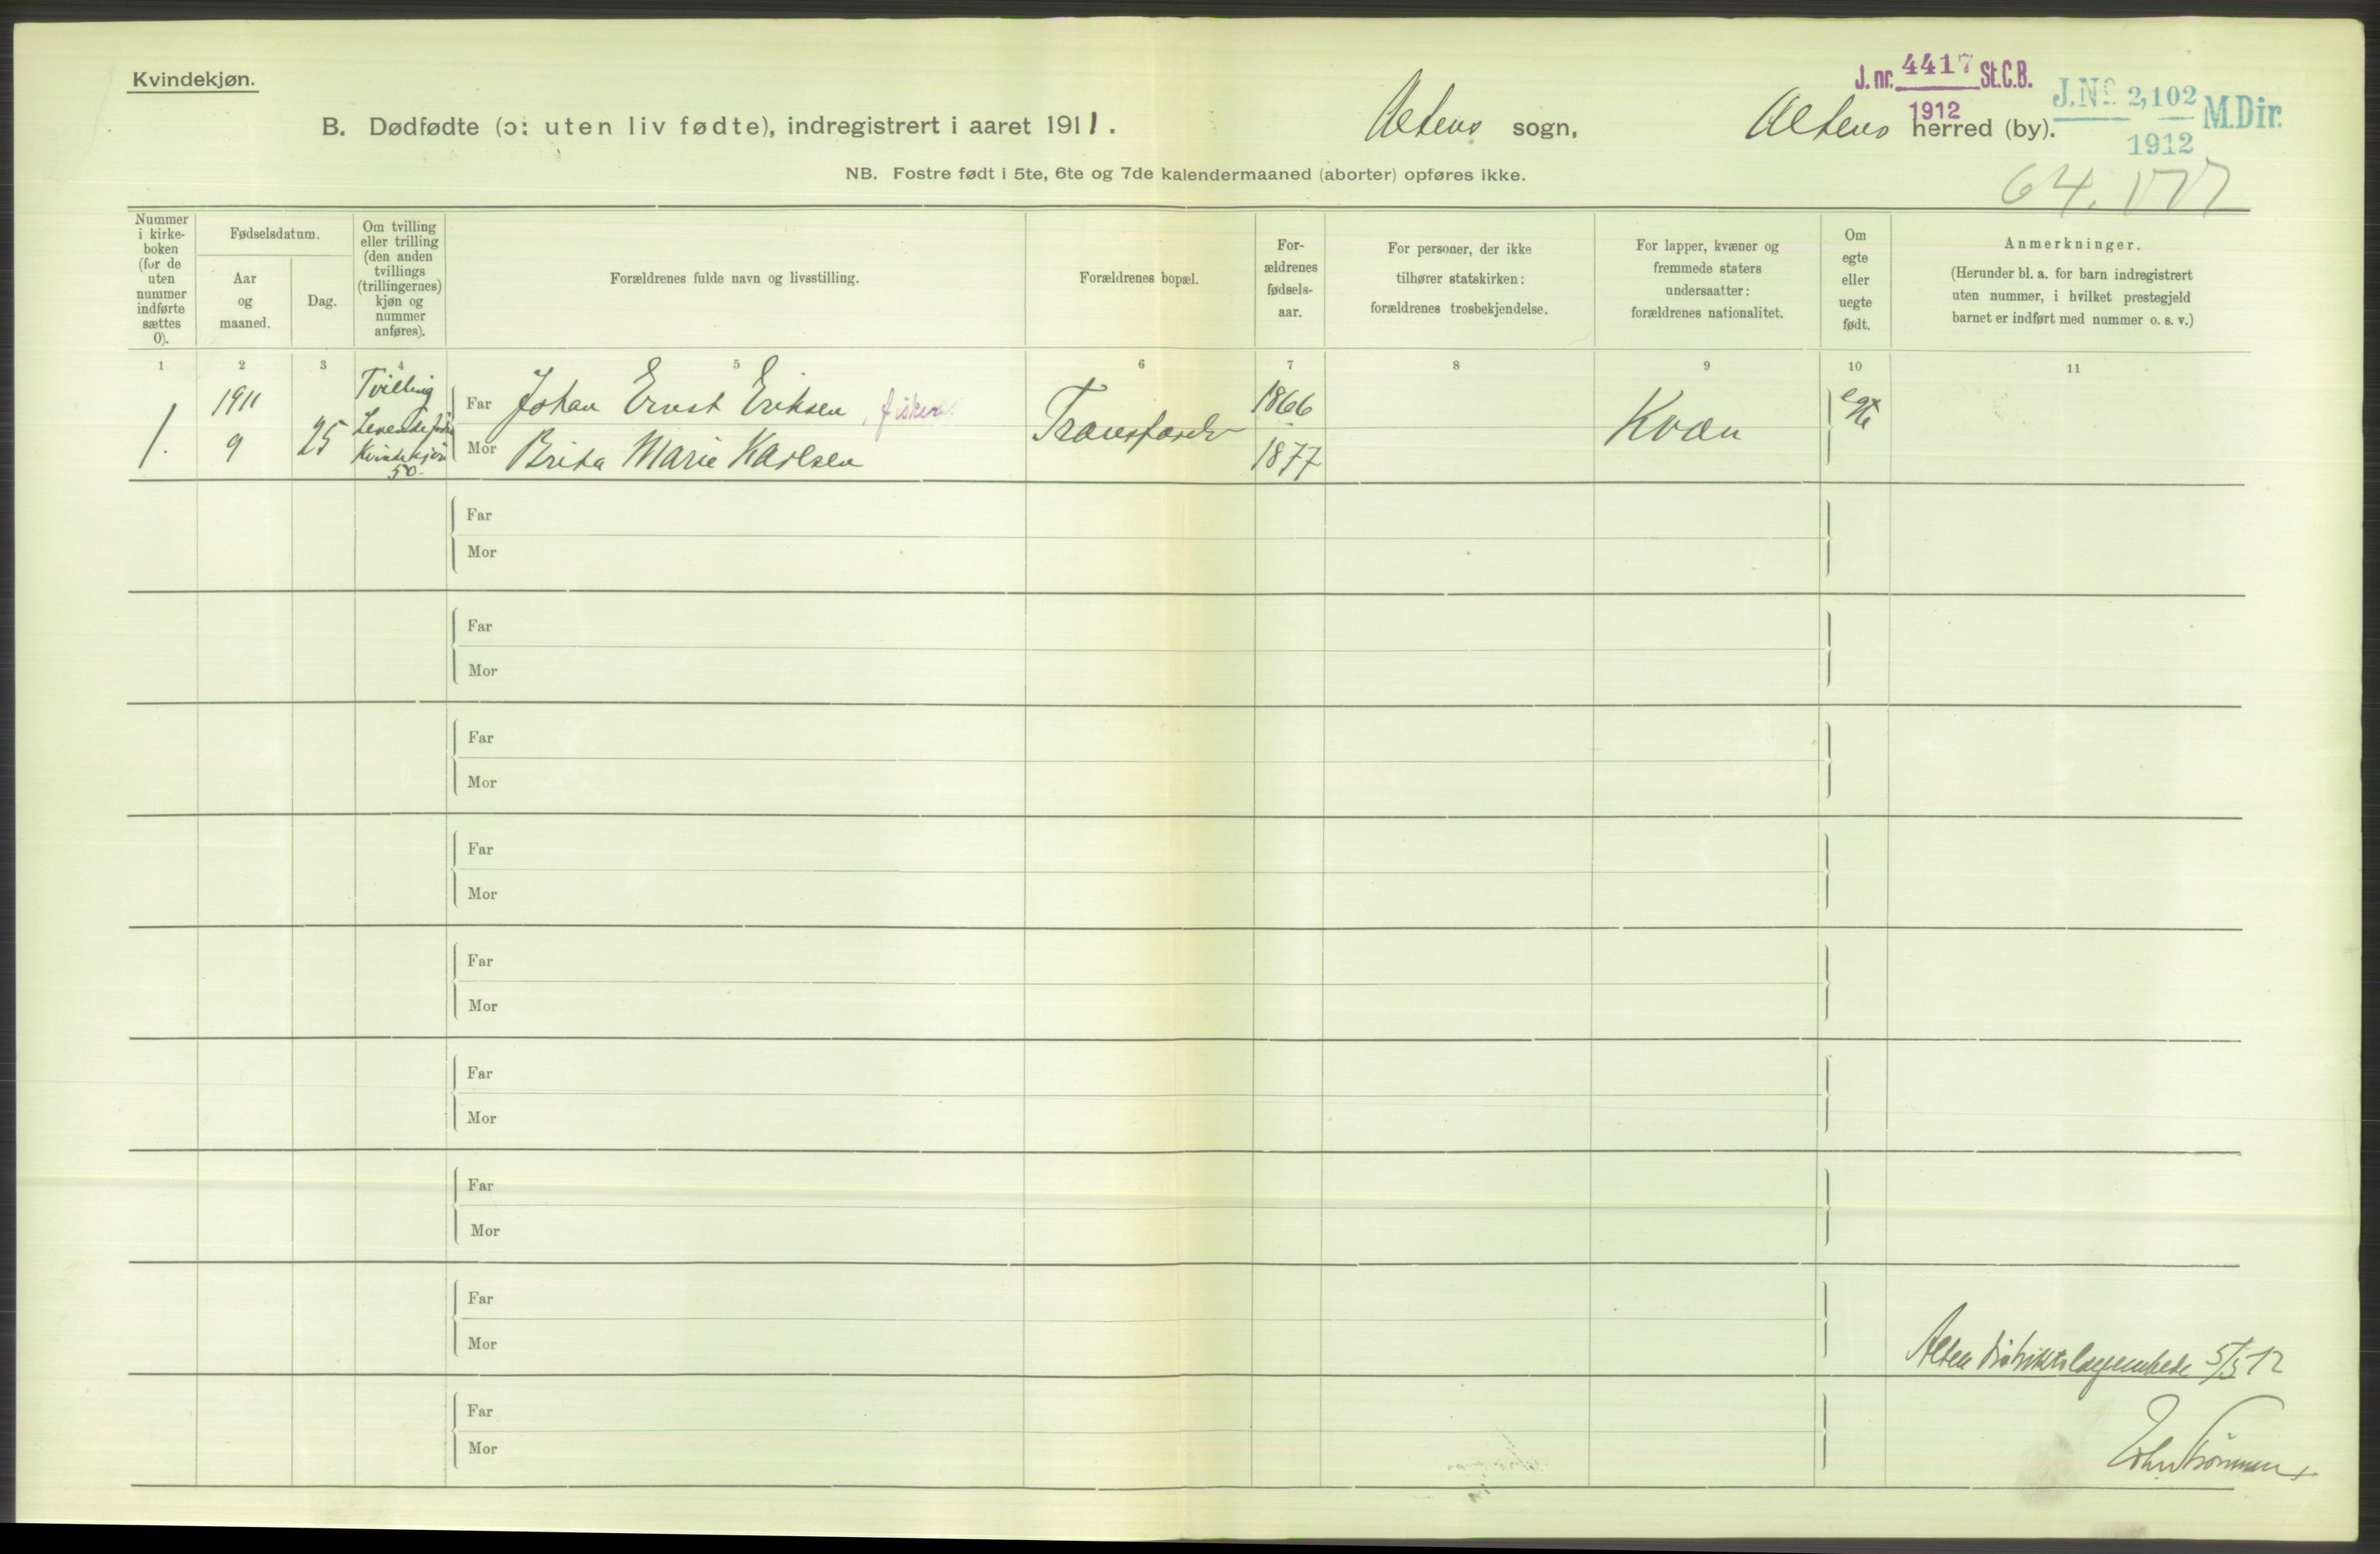 Kvindekjøn.
J. nr. 4417 St.C.B.
1912
J.No 2,102 M.Dir.
1912
B. Dødfødte (ɔ: uten liv fødte), indregistrert i aaret 1911. Altens sogn, Altens herred (by).
NB. Fostre født i 5te, 6te og 7de kalendermaaned (aborter) opføres ikke.
Nummer
i kirke-
boken
(for de
uten
nummer
indførte
sættes
0).
Fødselsdatum.
Aar
og
maaned.
Dag.
Om tvilling
eller trilling
(den anden
tvillings
(trillingernes)
kjøn og
nummer
anføres).
Forældrenes fulde navn og livsstilling.
Forældrenes bopæl.
For-
ældrenes
fødsels-
aar.
For personer, der ikke
tilhører statskirken:
forældrenes trosbekjendelse.
For lapper, kvæner og
fremmede staters
undersaatter:
forældrenes nationalitet.
Om
egte
eller
uegte
født.
Anmerkninger.
(Herunder bl. a. for barn indregistrert
uten nummer, i hvilket prestegjeld
barnet er indført med nummer o. s. v.)
1 2 3 4 5 6 7 8 9 10 11
1.
1911
9
25
Tvilling
Levende født
Kvindekjøn
50.
Far Johan Ernst Eriksen, fisker
Mor Brita Marie Karlsen
1866
1877
Kvæn
egte
Far
Mor
Far
Mor
Far
Mor
Far
Mor
Far
Mor
Far
Mor
Far
Mor
Far
Mor
Far
Mor
Alten distriktslægeembede 5/3 12